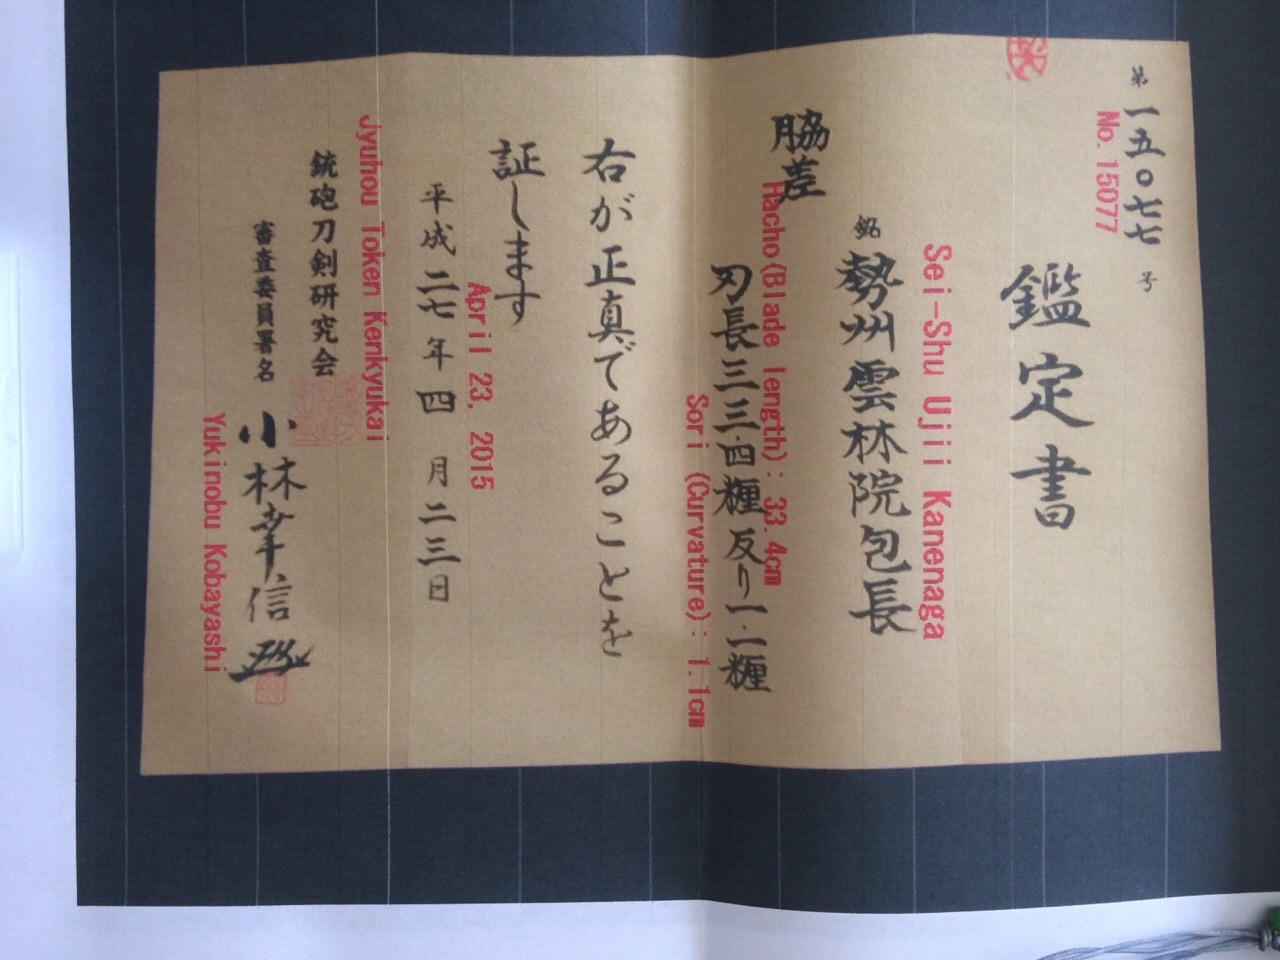 第一五〇七七号
No. 15077
鑑定書
Sei-Shu Uji Kanenaga
銘 勢州雲林院包長
脇差
Hacho(Blade length): 33.4cm
刃長三三.四糎 反り一.一糎
Sori (Curvature): 1.1cm
右が正真であることを
証します
April 23, 2015
平成二七年四月二三日
Jyuhou Token Kenkyukai
銃砲刀剣研究会
審査委員署名 小林幸信
Yukinobu Kobayashi